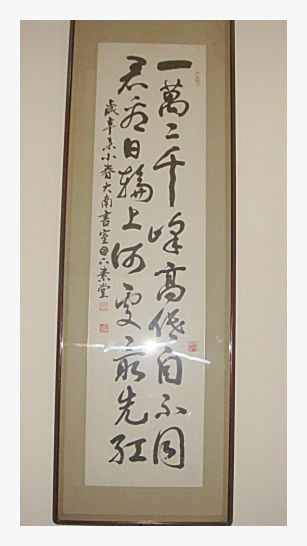 一萬二千峰高低自不同
君看日輪上何處最先紅
歲辛未小春大南書室素堂